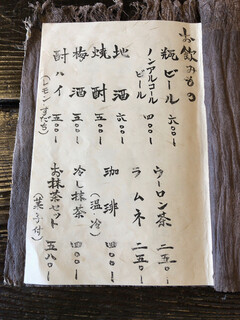 お飲みもの
瓶ビール 六〇〇ー
ノンアルコールビール 四〇〇ー
地酒 六〇〇ー
焼酎 五〇〇ー
梅酒 五〇〇ー
酎ハイ 五〇〇ー
(レモン すだち)
ウーロン茶 二五〇ー
ラムネ 二五〇ー
珈琲 四〇〇ー
(温 冷)
冷し抹茶 四〇〇ー
お抹茶セット 五八〇ー
(菓子付)